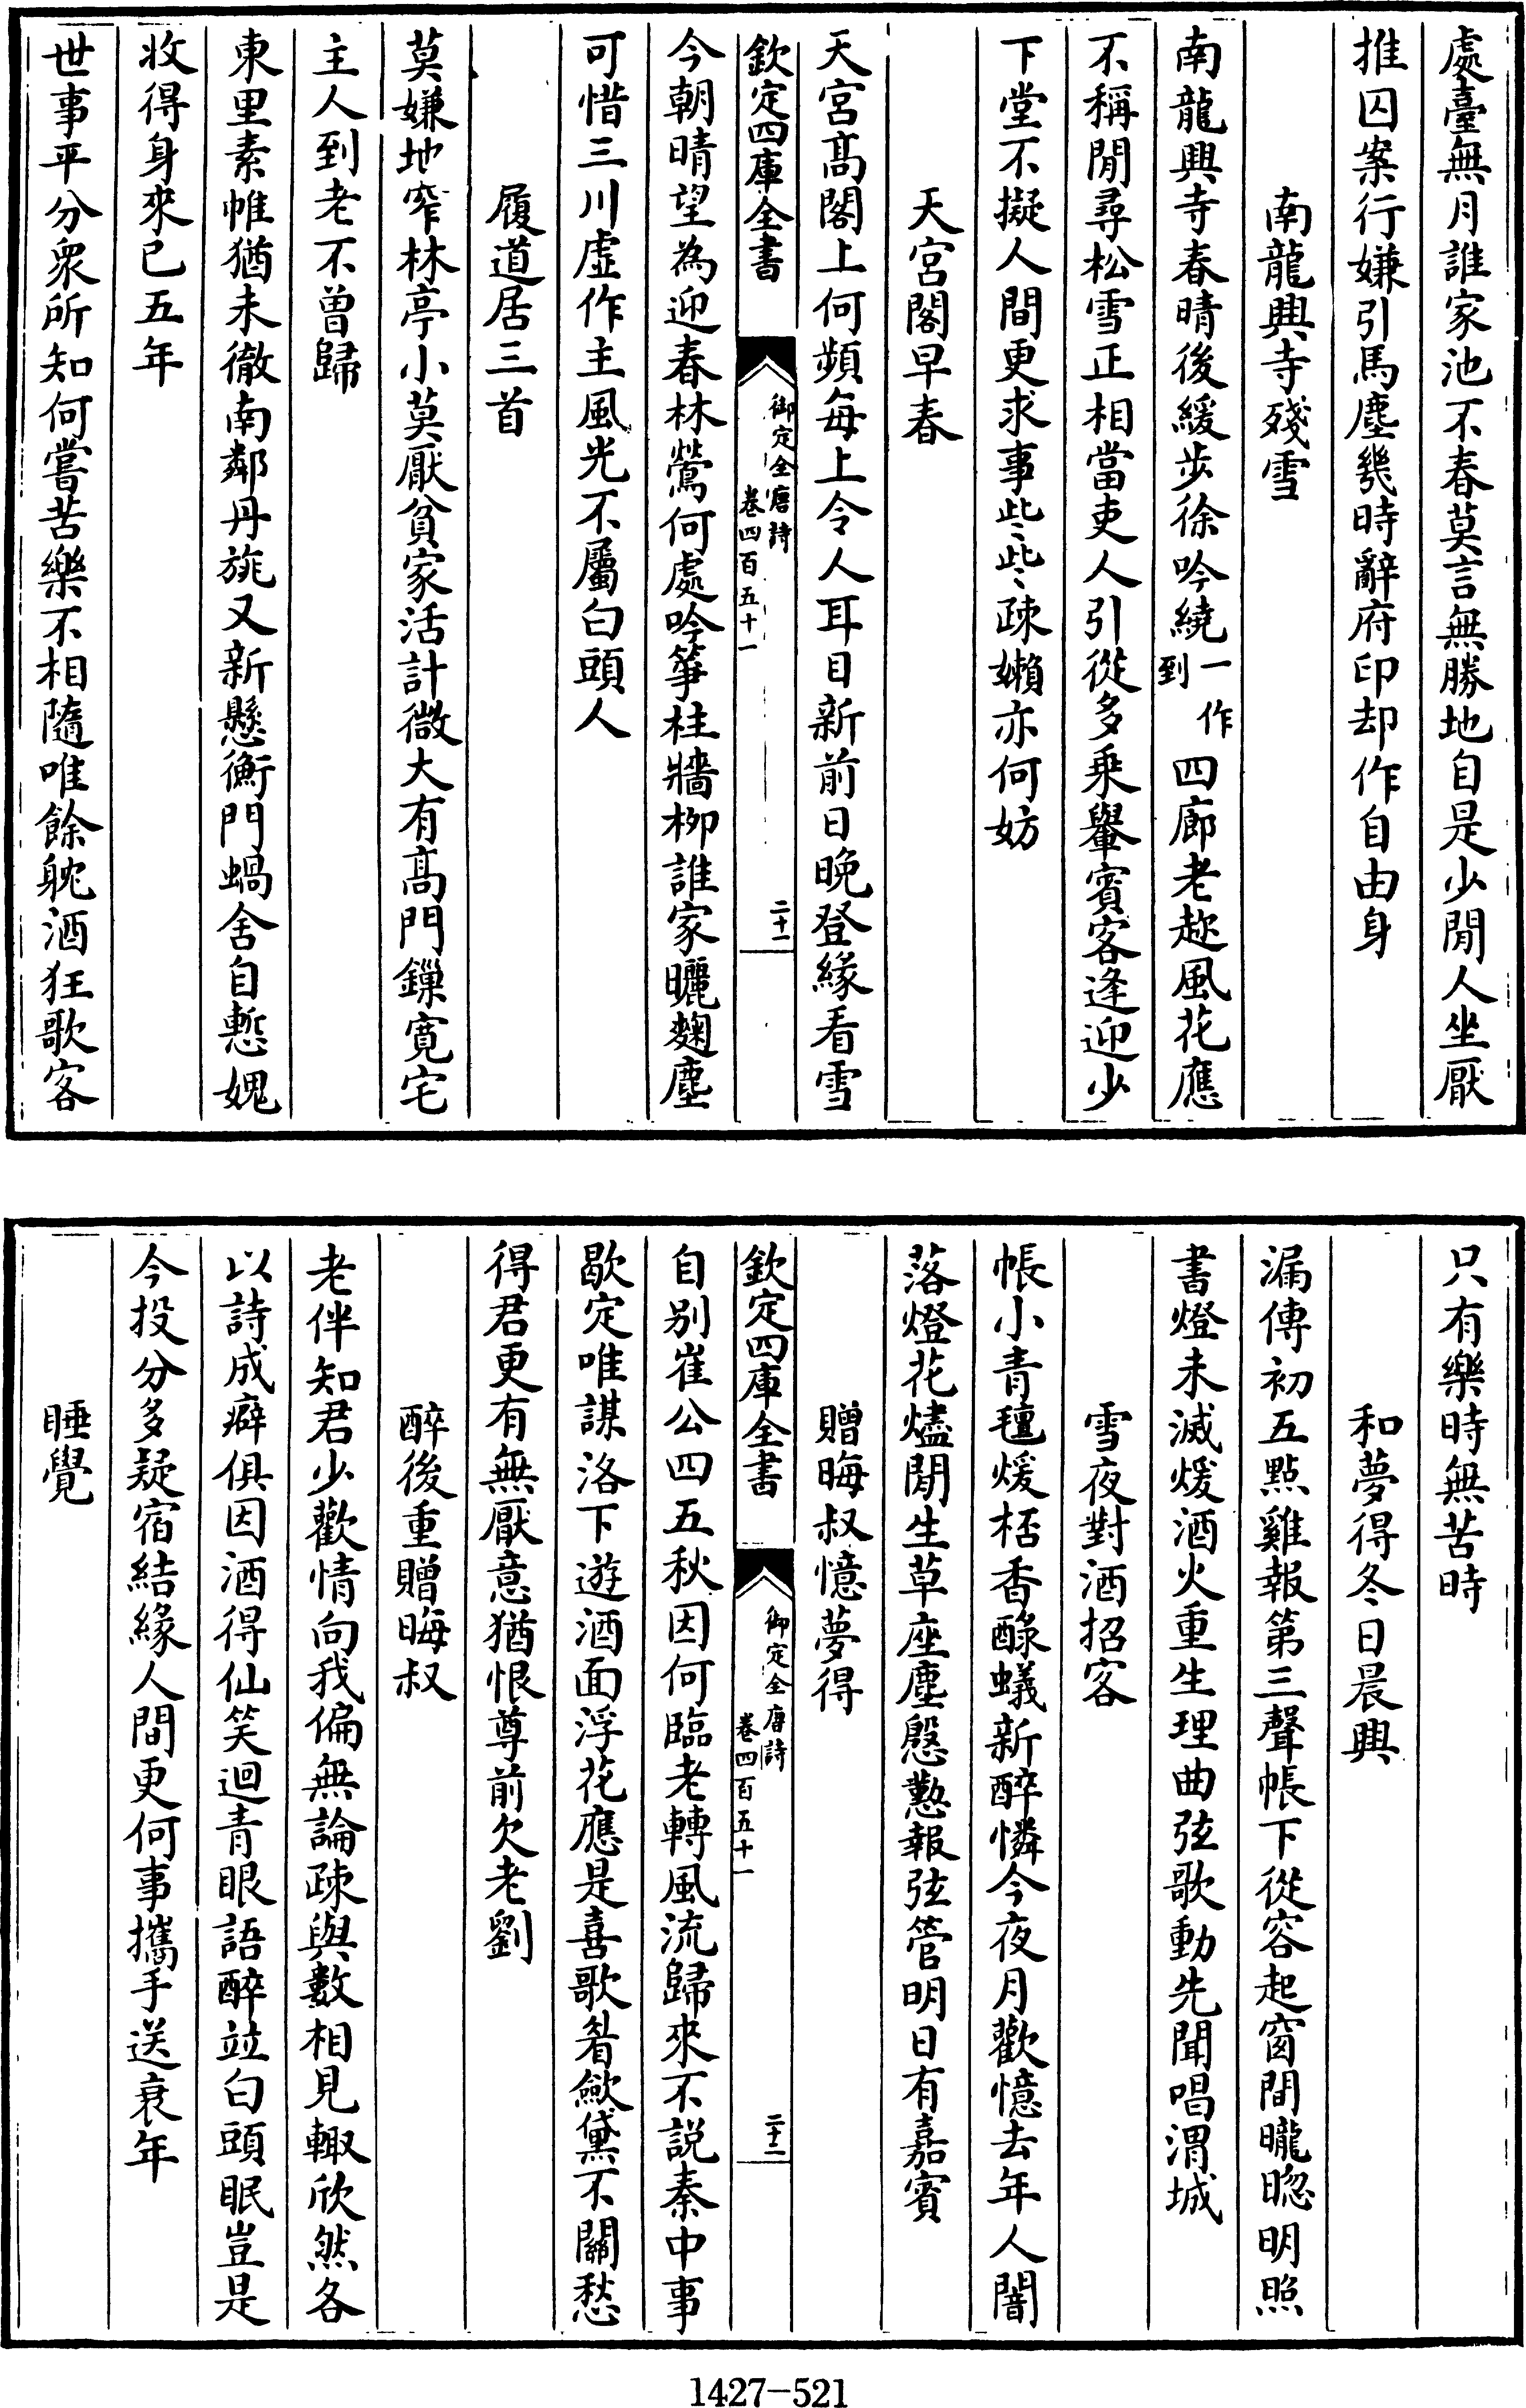 處臺無月誰家池不春莫言無勝地自是少閒人坐厭
推囚案行嫌引馬塵幾時辭府印却作自由身
南龍興寺殘雪
南龍興寺春晴後緩步徐吟繞一作到四廊老趂風花應
不稱閒尋松雪正相當吏人引從多乘轝賓客逢迎少
下堂不擬人間更求事些些疎嬾亦何妨
天宮閣早春
天宮髙閣上何頻每上令人耳目新前日晚登緣看雪
欽定四庫全書
御定全唐詩
卷四百五十一
二十一
今朝晴望為迎春林鶯何處吟箏柱牆栁誰家曬麴塵
可惜三川虚作主風光不屬白頭人
履道居三首
莫嫌地窄林亭小莫厭貧家活計微大有髙門鏁寛宅
主人到老不曽歸
東里素帷猶未徹南鄰丹旐又新懸衡門蝸舍自慙媿
收得身來已五年
世事平分衆所知何嘗苦樂不相隨唯餘躭酒狂歌客
只有樂時無苦時
和夢得冬日晨興
漏傳初五點雞報第三聲帳下從容起窗間曨曶明照
書燈未滅煖酒火重生理曲弦歌動先聞唱渭城
雪夜對酒招客
帳小青氊煖桮香醁蟻新醉憐今夜月歡憶去年人闇
落燈花燼閒生草座塵慇懃報弦管明日有嘉賓
贈晦叔憶夢得
欽定四庫全書
御定全唐詩
卷四百五十一
二十二
自别崔公四五秋因何臨老轉風流歸來不說秦中事
歇定唯謀洛下遊酒面浮花應是喜歌眉斂黛不關愁
得君更有無厭意猶恨尊前欠老劉
醉後重贈晦叔
老伴知君少歡情向我偏無論疎與數相見輙欣然各
以詩成癖俱因酒得仙笑迴青眼語醉竝白頭眠豈是
今投分多疑宿結緣人間更何事攜手送衰年
睡覺
1427-521